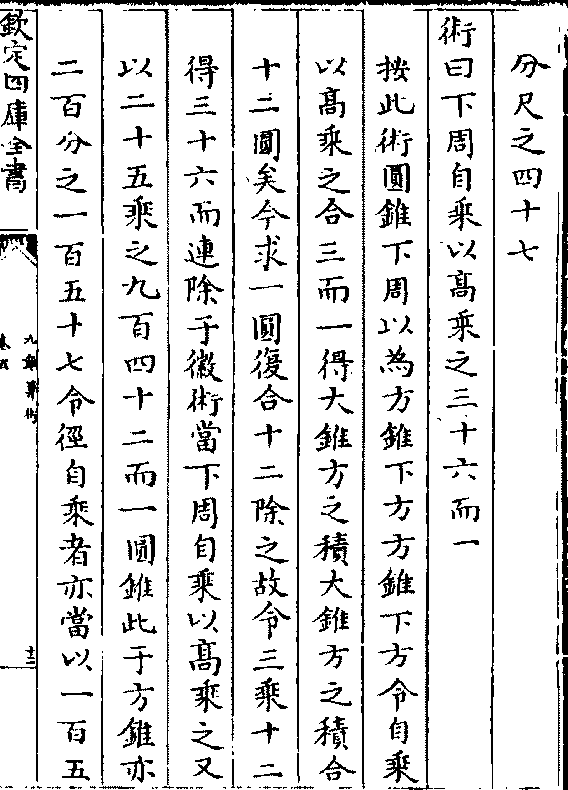 分尺之四十七
術曰下周自乗以髙乗之三十六而一
按此術圓錐下周以為方錐下方方錐下方令自乗
以髙乗之合三而一得大錐方之積大錐方之積合
十二圓矣今求一圓復合十二除之故令三乗十二
得三十六而連除于徽術當下周自乗以髙乗之又
以二十五乗之九百四十二而一圓錐此于方錐亦
二百分之一百五十七令徑自乗者亦當以一百五
欽定四庫全書
九章算術
卷五
十三